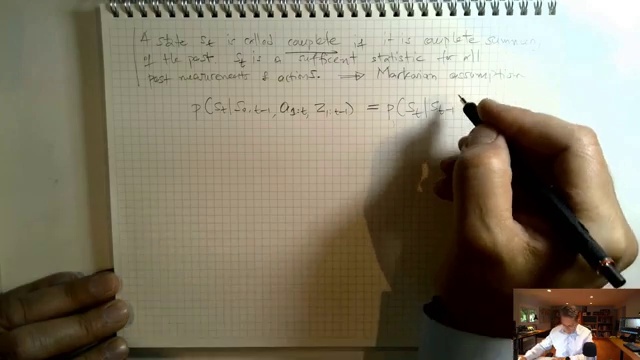 A state St is called complete if it is complete summ
of the past St is a sufficent statistic for all
past measurements & actions. ⟹ Markovian assumption
p(St|S0:t-1, a1:t, Z1:t-1) = p(St|St-1